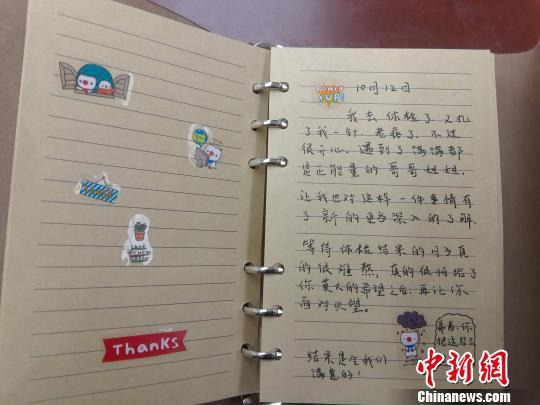 Thanks
SAVE
THE
POWER
UP!
10月12日
我去体检了,又扎
了我一针,老疼了,不过
很开心,遇到了满满都
是正能量的哥哥姐姐,
让我也对这样一件事情有
了新的更为深入的了解.
等待体检结果的日子真
的很难熬,真的很怕给了
你莫大的希望之后,再让你
面对失望.
结果是令我们
满意的!
中新网
www.chinanews.com